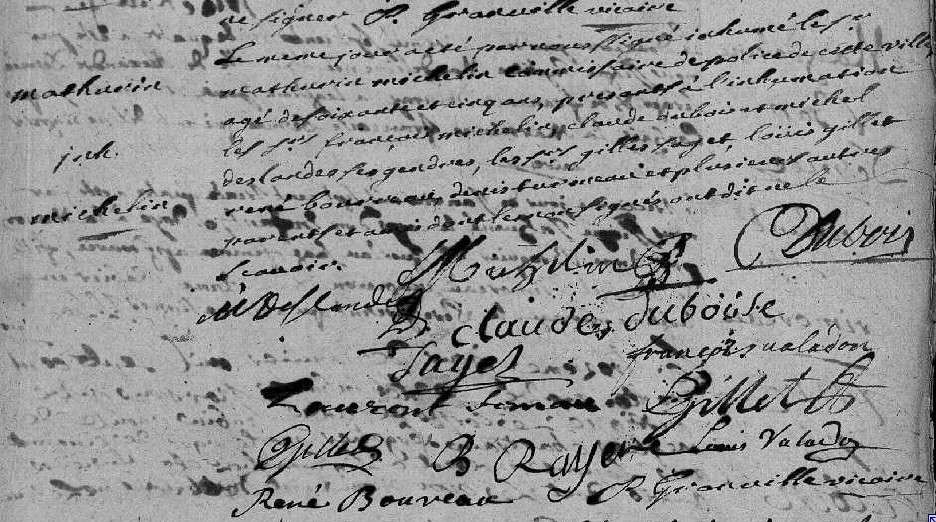 ne signer P. Granville vicaire
Le meme jour a eté par nous ssigné inhumé le s.r
mathurin michelin commissaire de police de cette ville
mathurin
agé de soixante et cinq ans, presents à l'inhumation
inh.
les srs françois michelin, claude dubois et michel
deslandes ses gendres, les srs gilles faget, louis gillet
michelin
rené bourreau, denis turmeau et plusieurs autres
parents et amis dont les uns signés ont dit ne le
scavoir
Michelin Dubois
M Deslandes
claudes duboise
fayet françois valadon
Laurent Gillet
Gillet B Rayer Louis Valadon
René Boureau P. Granville vicaire